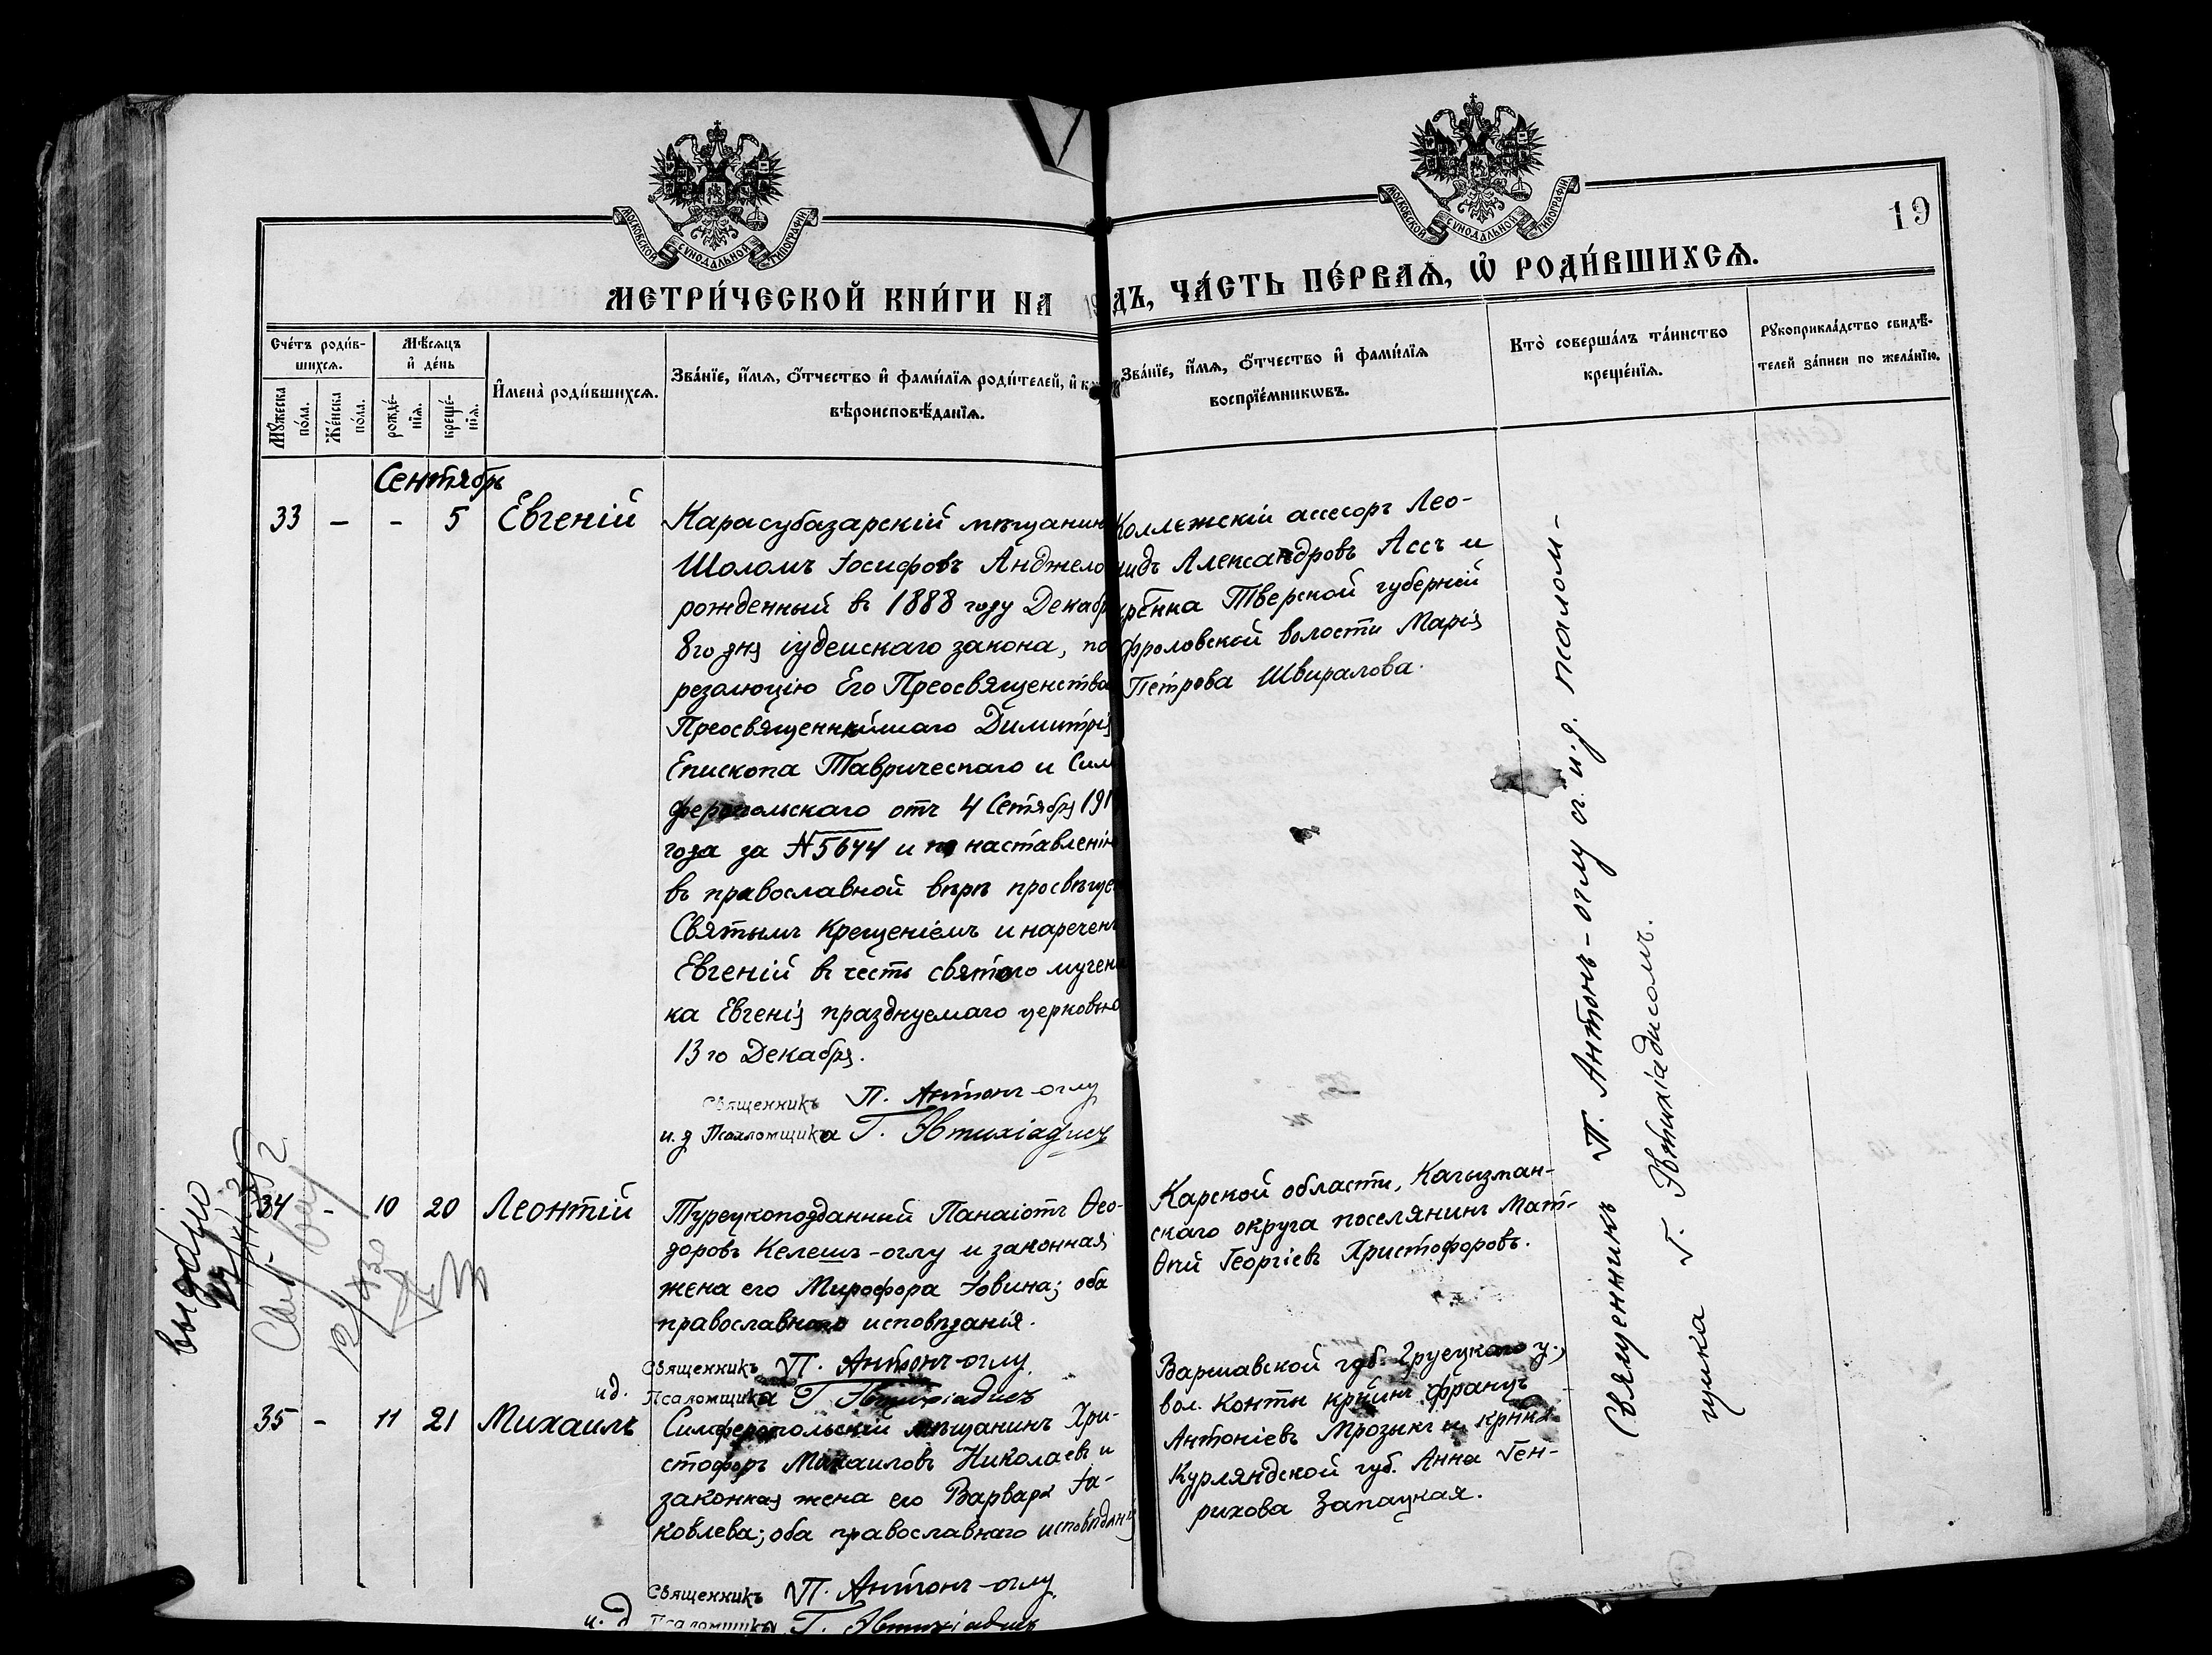 МОСКОВСКОЙ СУНОДАЛЬНОЙ ТИПОГРАФІИ
МОСКОВСКОЙ СУНОДАЛЬНОЙ ТИПОГРАФІИ
19
МЕТРИ́ЧЕСКОЙ КНИ́ГИ НА
ДЪ, ЧА́СТЬ ПЕ́РВАѦ, Ѡ҆ РОДИ́ВШИХСѦ.
Сче́тъ роди́в-
шихсѧ.
Мѣ́сѧцъ
и҆ де́нь
Мꙋ́жеска
по́ла.
Же́нска
по́ла.
рожде́-
нїѧ.
креще́-
нїѧ.
И҆мена̀ роди́вшихсѧ.
Зва́нїе, и҆́мѧ, ѻ҆́тчество и҆ фамѝлїѧ роди́телей, и҆
вѣроисповѣ́данїѧ.
Зва́нїе, и҆́мѧ, ѻ҆́тчество и҆ фамѝлїѧ
воспрїе́мникѡвъ.
Кто̀ соверша́лъ та́инство
креще́нїѧ.
Рꙋкоприкла́дство свидѣ́-
телей за́писи по жела́нїю.
Сентябрь
33 – – 5 Евгеній
Карасубазарскій мѣщанин
Шоломъ Іосифовъ Анджело
рожденный въ 1888 году Декабр
8го дня іудейскаго закона, по
резолюцію Его Преосвященства
Преосвященнѣйшаго Димитрія
Епископа Таврическаго и Сим
феропольскаго отъ 4 Сетября 191
года за № 5644 и по наставленію
въ православной вѣрѣ просвѣщен
Святымъ Крещеніемъ и наречен
Евгеній въ честь святого мучени
ка Евгенія празднуемаго церковью
13го Декабря.
Священникъ П. Антонъ-оглу
и.д Псаломщика Г. Эвтихіадисъ
Коллежскій ассесоръ Лео-
нидъ Александровъ Ассъ и
кр̅енка Тверской губерніи
Фроловской волости Марія
Петрова Швиралова.
Священникъ П. Антонъ-оглу и и.д. псалом-
щика Г. Эвтихіадисомъ.
выдано
34 - 10 20 Леонтій
Турецкоподданный Панаіотъ Ѳео-
доровъ Келешъ-оглу и законная
жена его Мирофора Іовина; оба
православнаго исповѣданія.
Священникъ П. Антонъ-оглу
и.д. Псаломщика Г Эвтихіадисъ
Карской области, Кагызман-
скаго округа поселянинъ Мат-
ѳей Георгіевъ Христофоровъ.
35 - 11 21 Михаилъ
Симферопольскій мѣщанинъ Хри-
стофоръ Михаиловъ Николаевъ и
законная жена его Варвара Іа-
ковлева; оба православнаго исповѣданія
Священникъ П. Антонъ-оглу
и.д Псаломщика Г. Эвтихіадисъ
Варшавской губ. Груецкаго у.,
вол. Конты кр̅нинъ Францъ
Антоніевъ Мрозыкъ и кр̅нка
Курляндской губ. Анна Ген-
рихова Запацкая.